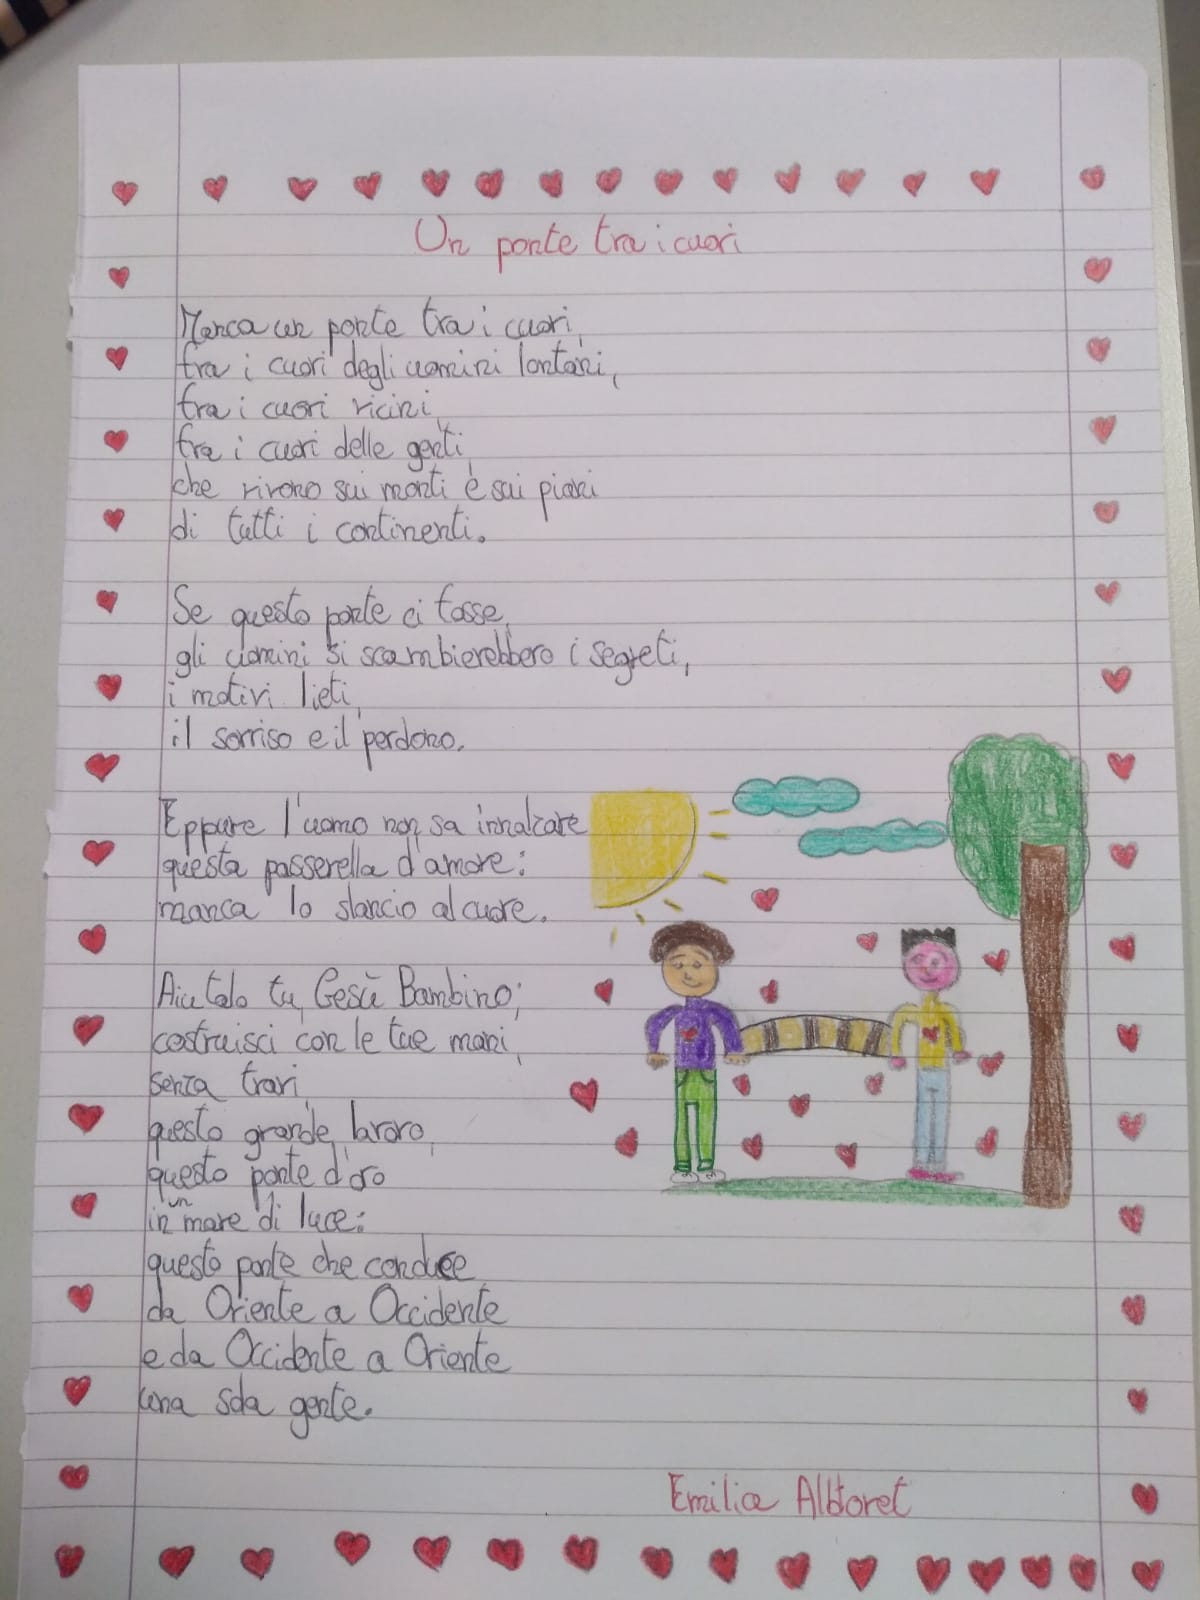 Un ponte tra i cuori
Manca un ponte tra i cuori,
fra i cuori degli uomini lontani,
fra i cuori vicini,
fra i cuori delle genti,
che vivono sui monti e sui piani
di tutti i continenti.
Se questo ponte ci fosse,
gli uomini si scambierebbero i segreti,
i motivi lieti,
il sorriso e il perdono.
Eppure l'uomo non sa innalzare
questa passerella d'amore:
manca lo slancio al cuore.
Aiutalo tu, Gesù Bambino;
costruisci con le tue mani,
senza travi,
questo grande lavoro,
questo ponte d'oro
in un mare di luce:
questo ponte che conduce
da Oriente a Occidente
e da Occidente a Oriente
una sola gente.
Emilia